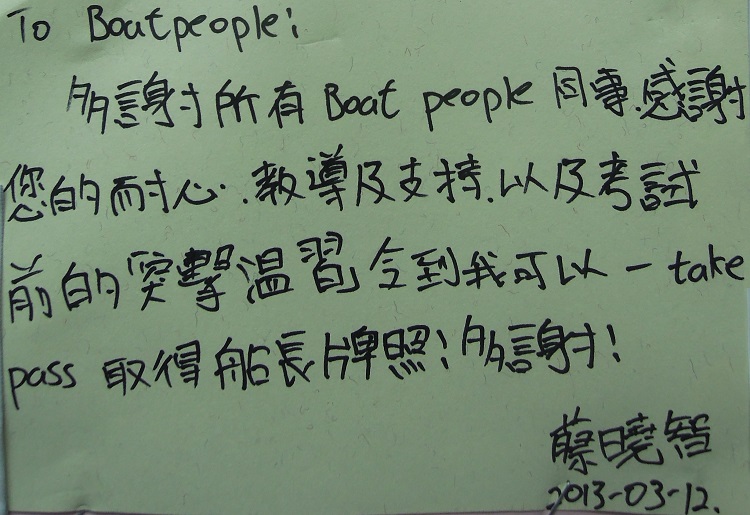 To Boatpeople:
多謝所有Boat people同事.感謝
您的耐心.教導及支持.以及考試
前的突擊溫習令到我可以一take
pass取得船長牌照!多謝!
蔡曉智
2013-03-12.